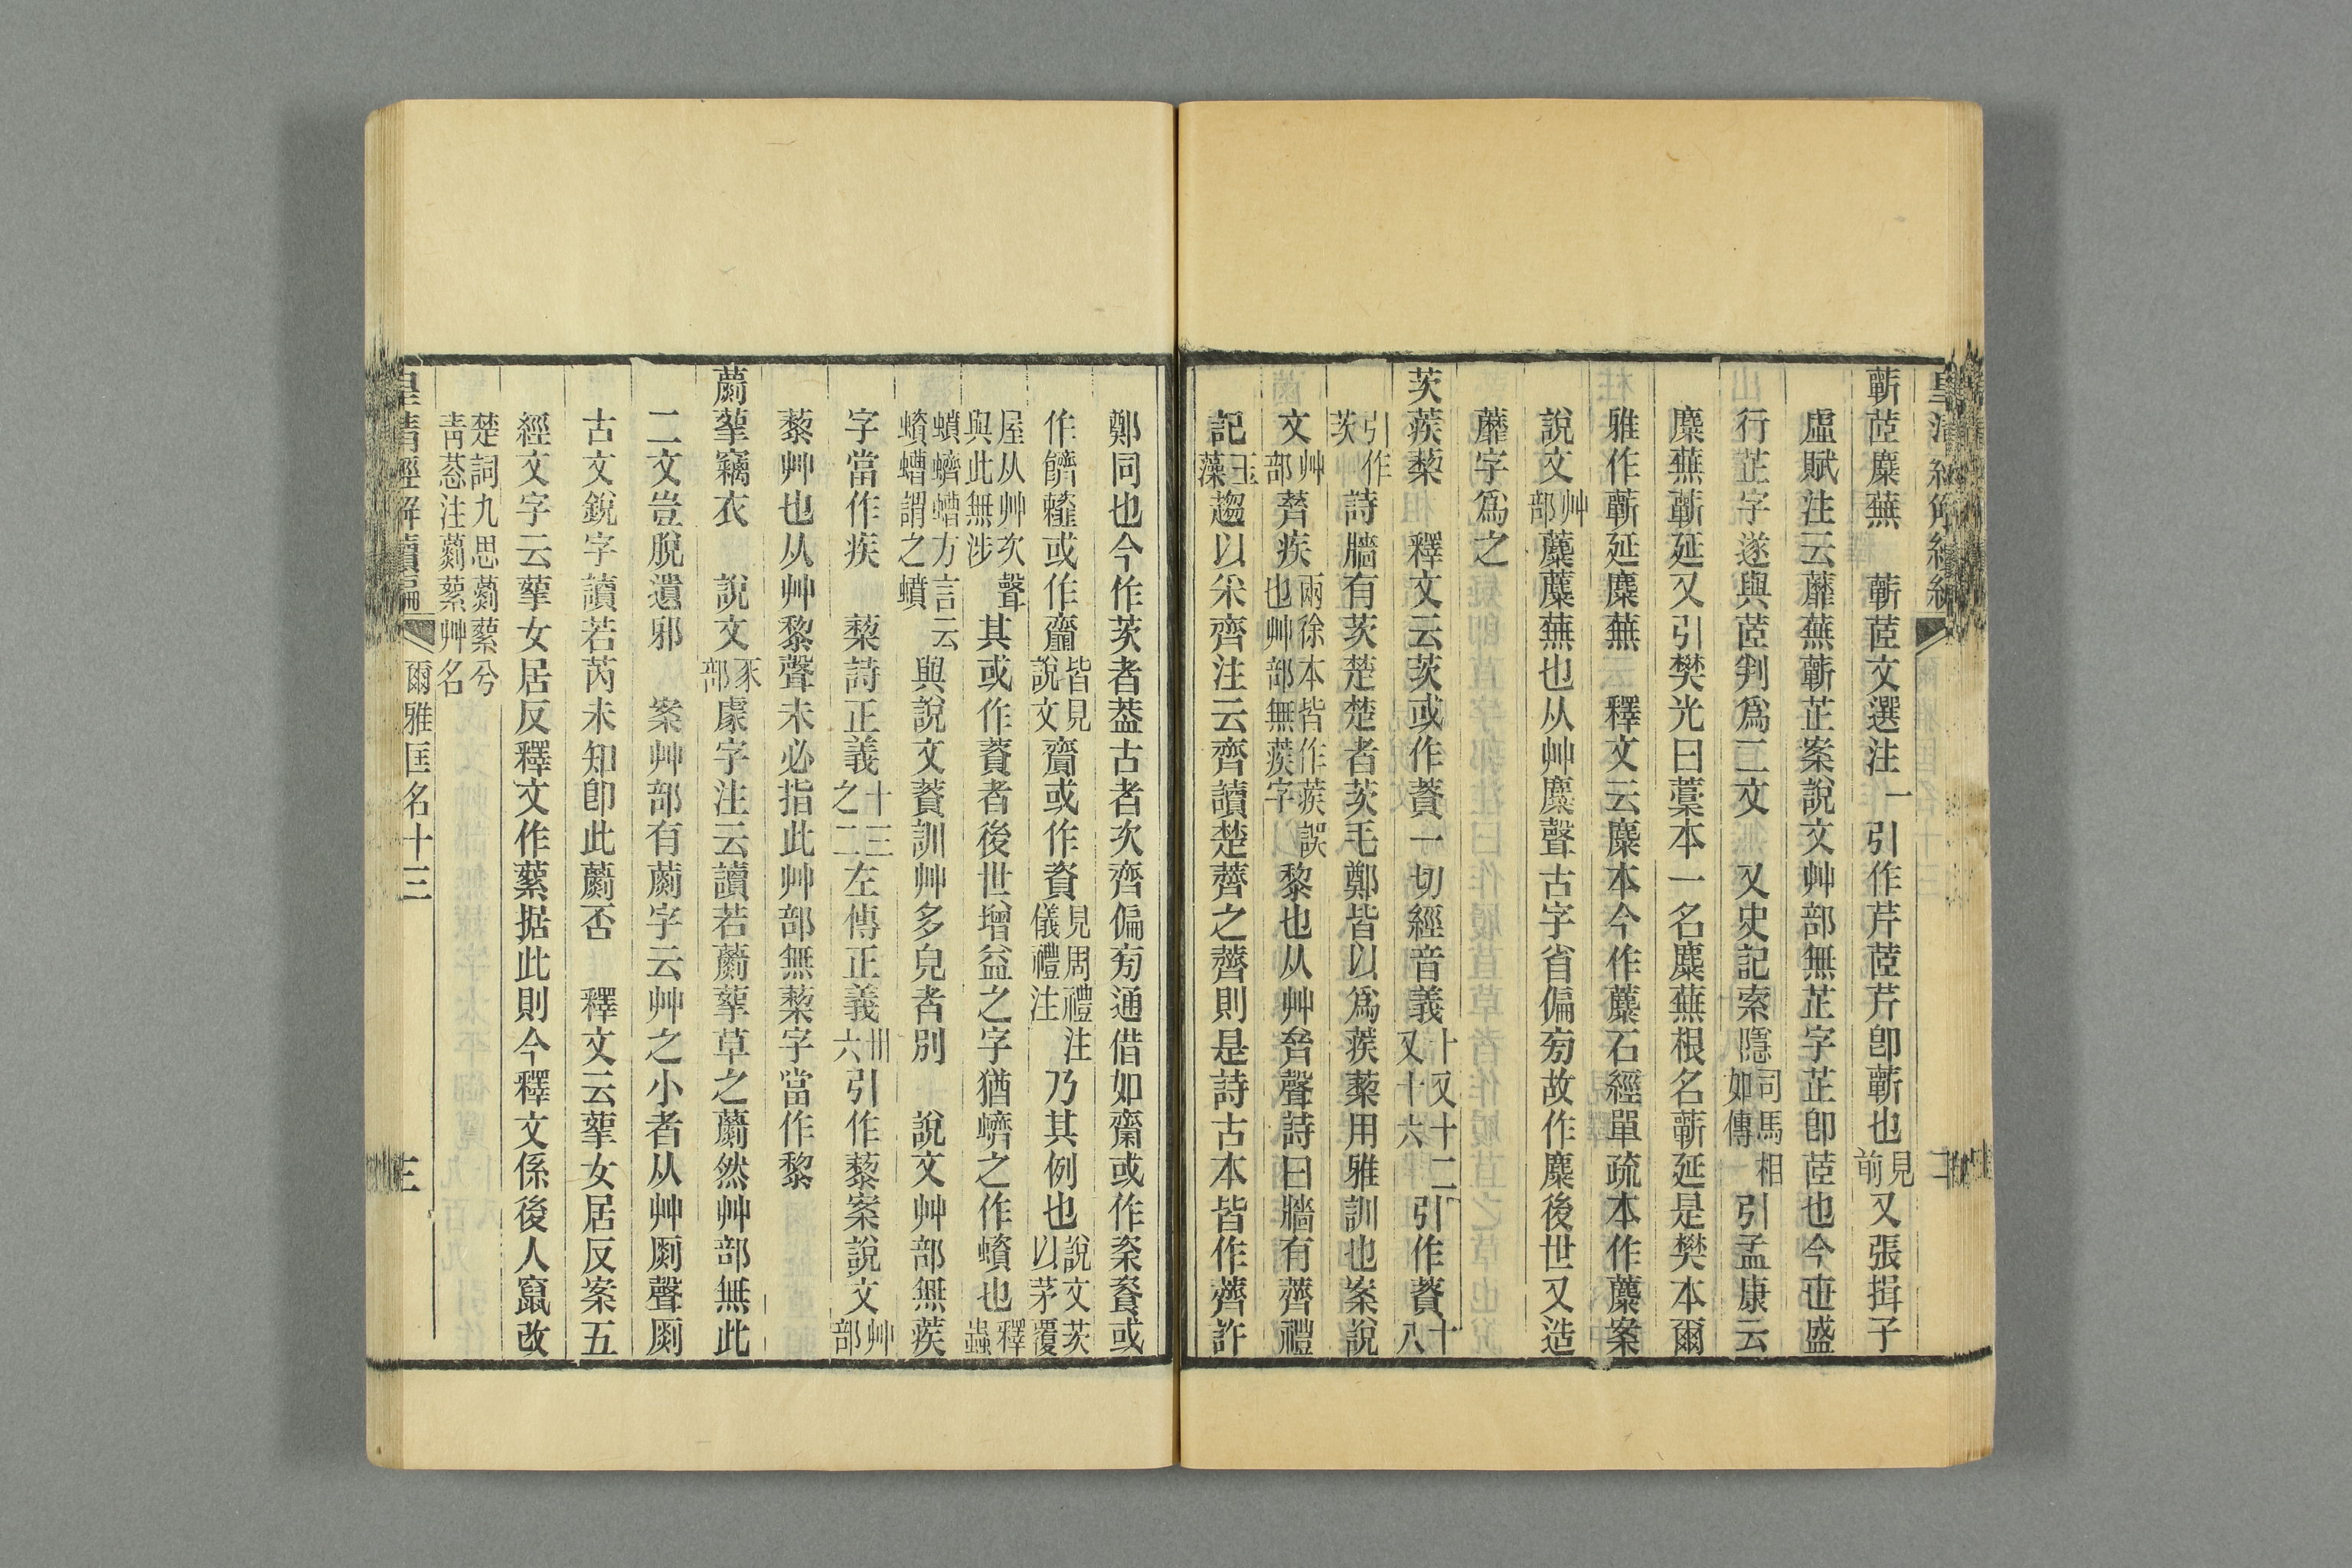 蘄茝蘪蕪　蘄茝文選注一引作芹茝芹卽蘄也見前又張揖子
虛賦注云蘼蕪蘄芷案說文艸部無芷字芷卽茝也今世盛
行芷字遂與茝判爲二文　又史記索隱司馬相如傳引孟康云
蘪蕪蘄延又引樊光曰藁本一名蘪蕪根名蘄延是樊本爾
雅作蘄延麋蕪　釋文云麋本今作蘪石經單疏本作蘪案
說文艸部蘪蘪蕪也从艸麋聲古字省偏旁故作麋後世又造
蘼字爲之
茨蒺藜　釋文云茨或作薋一切經音義十又十二又十六引作薋十八
引作茨詩牆有茨楚楚者茨毛鄭皆以爲蒺藜用雅訓也案說
文艸部薺疾兩徐本皆作蒺誤也艸部無蒺字黎也从艸齊聲詩曰牆有薺禮
記玉藻趨以采齊注云齊讀楚薺之薺則是詩古本皆作薺許
鄭同也今作茨者葢古者次齊偏旁通借如齋或作粢餈或
作䭣䆅或作齏皆見說文齎或作資見周禮注儀禮注乃其例也說文茨以茅覆
屋从艸次聲與此無涉其或作薋者後世增益之字猶蠐之作蠀也釋蟲
蟦蠐螬方言云蠀螬謂之蟦與說文薋訓艸多皃者別　說文艸部無蒺
字當作疾　藜詩正義十三之二左傳正義卅六引作藜案說文艸部
藜艸也从艸黎聲未必指此艸部無蔾字當作黎
藺葞竊衣　說文豕部豦字注云讀若蘮蒘草之蘮然艸部無此
二文豈脫遺邪　案艸部有藺字云艸之小者从艸𠛎聲𠛎
古文銳字讀若芮未知卽此蘮否　釋文云蒘女居反案五
經文字云蒘女居反釋文作蘻据此則今釋文係後人竄改
楚詞九思蘮蘻兮靑蔥注蘮蘻艸名
皇淸經解續編　爾雅匡名十三